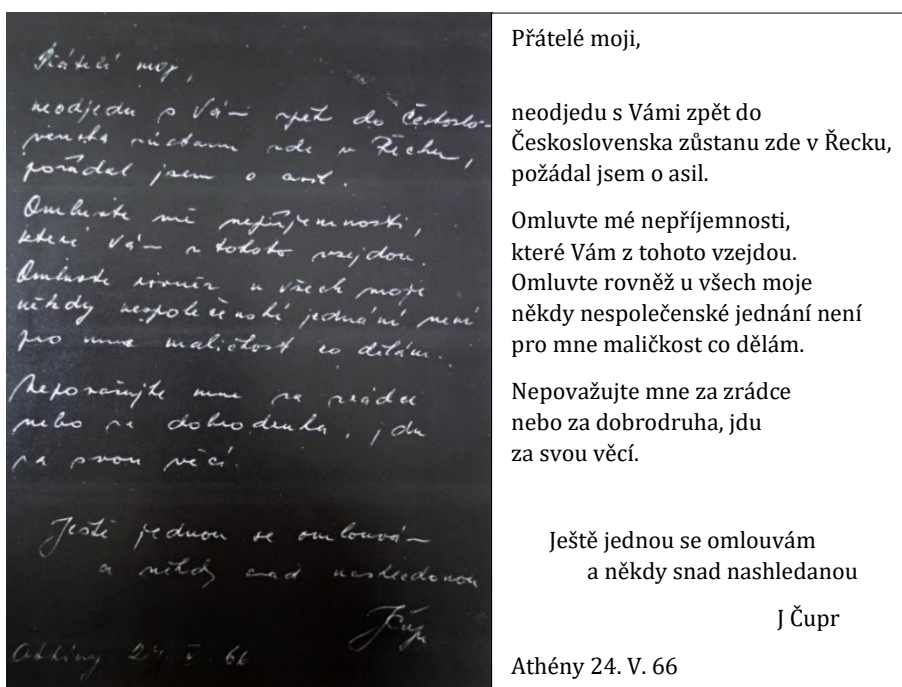 Přátelé moji,
neodjedu s Vámi zpět do Českoslo-
venska zůstanu zde v Řecku,
požádal jsem o asil.
Omluvte mé nepříjemnosti,
které Vám z tohoto vzejdou.
Omluvte rovněž u všech moje
někdy nespolečenské jednání není
pro mne maličkost co dělám.
Nepovažujte mne za zrádce
nebo za dobrodruha, jdu
za svou věcí.
Ještě jednou se omlouvám
a někdy snad nashledanou
JČupr
Athény 24. V. 66
Přátelé moji,
neodjedu s Vámi zpět do
Československa zůstanu zde v Řecku,
požádal jsem o asil.
Omluvte mé nepříjemnosti,
které Vám z tohoto vzejdou.
Omluvte rovněž u všech moje
někdy nespolečenské jednání není
pro mne maličkost co dělám.
Nepovažujte mne za zrádce
nebo za dobrodruha, jdu
za svou věcí.
Ještě jednou se omlouvám
a někdy snad nashledanou
J Čupr
Athény 24. V. 66